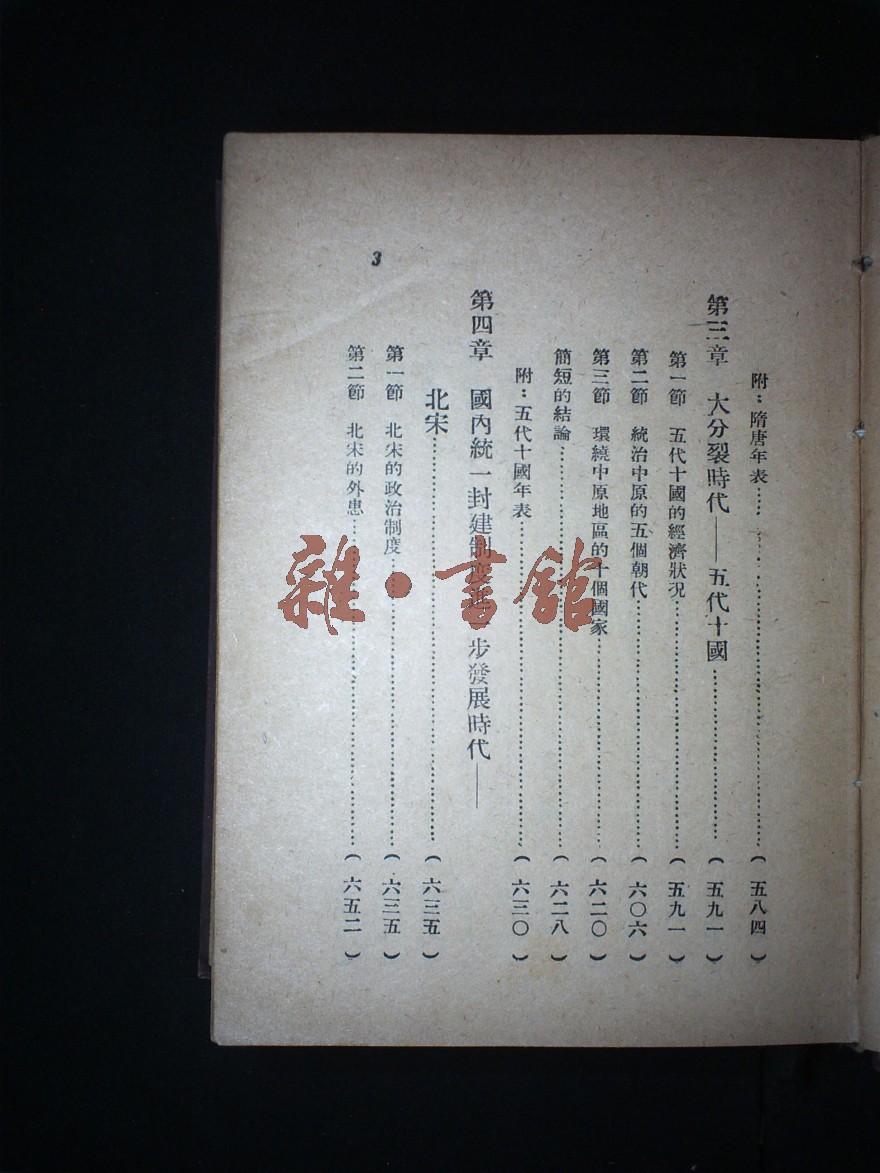 附：隋唐年表……（五八四）
第三章　大分裂時代——五代十國……（五九一）
第一節　五代十國的經濟狀况……（五九一）
第二節　統治中原的五個朝代……（六〇六）
第三節　環繞中原地區的十個國家……（六二〇）
簡短的結論……（六二八）
附：五代十國年表……（六三〇）
第四章　國內統一封建制度進一步發展時代——
北宋……（六三五）
第一節　北宋的政治制度……（六三五）
第二節　北宋的外患……（六五二）
3
雜·書館